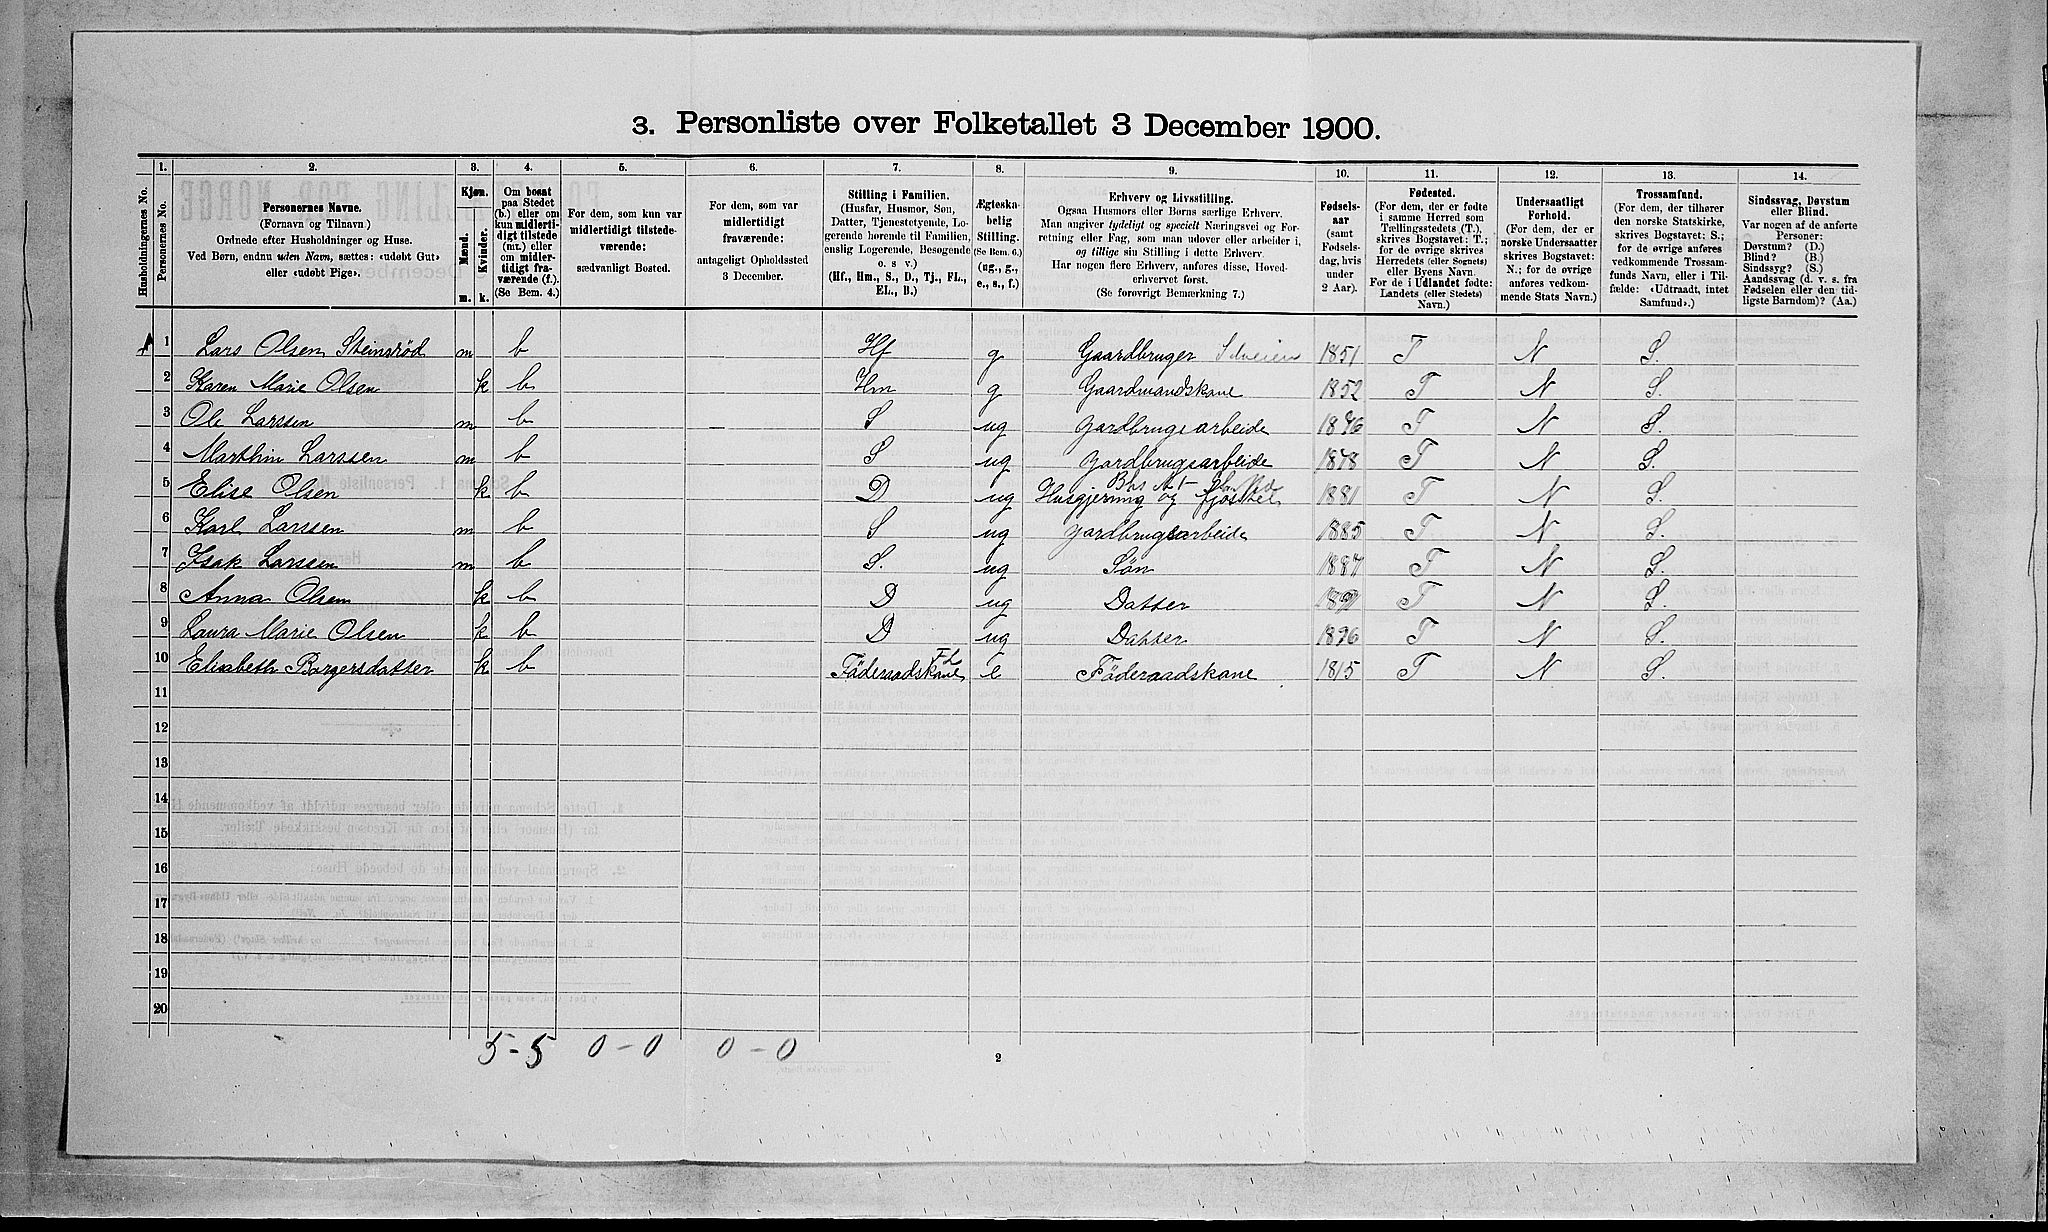 3. Personliste over Folketallet 3 December 1900.
1. 2. 3. 4. 5. 6. 7. 8. 9. 10. 11. 12. 13. 14.
Husholdningernes No.
Personernes No.
Personernes Navne.
(Fornavn og Tilnavn)
Ordnede efter Husholdninger og Huse.
Ved Børn, endnu uden Navn, sættes: «udøbt Gut»
eller «udøbt Pige».
Kjøn.
Mænd.
Kvinder.
m. k.
Om bosat
paa Stedet
(b.) eller om
kun midlerti-
digt tilstede
(mt.) eller
om midler-
tidigt fra-
værende (f.).
(Se Bem. 4.)
For dem, som kun var
midlertidigt tilstede-
værende:
sædvanligt Bosted.
For dem, som var
midlertidigt
fraværende:
antageligt Opholdssted
3 December.
Stilling i Familien.
(Husfar, Husmor, Søn,
Datter, Tjenestetyende, Lo-
gerende hørende til Familien,
enslig Logerende, Besøgende
o. s v.)
(Hf., Hm., S., D., Tj., FL.,
EL., B.)
Ægteska-
belig
Stilling.
(Se Bem. 6.)
(ug., g.,
e., s., f.)
Erhverv og Livsstilling.
Ogsaa Husmors eller Børns særlige Erhverv.
Man angiver tydeligt og specielt Næringsvei og For-
retning eller Fag, som man udøver eller arbeider i,
og tillige sin Stilling i dette Erhverv.
Har nogen flere Erhverv, anføres disse, Hoved-
erhvervet først.
(Se forøvrigt Bemærkning 7.)
Fødsels-
aar
(samt
Fødsels-
dag, hvis
under
2 Aar).
Fødested.
(For dem, der er fødte
i samme Herred som
Tællingsstedets (T.),
skrives Bogstavet: T.;
for de øvrige skrives
Herredets (eller Sognets)
eller Byens Navn.
For de i Udlandet fødte:
Landets (eller Stedets)
Navn.)
Undersaatligt
Forhold.
(For dem, der er
norske Undersaatter
skrives Bogstavet:
N.; for de øvrige
anføres vedkom-
mende Stats Navn.)
Trossamfund.
(For dem, der tilhører
den norske Statskirke,
skrives Bogstavet: S.;
for de øvrige anføres
vedkommende Trossam-
funds Navn, eller i Til-
fælde: «Udtraadt, intet
Samfund».)
Sindssvag, Døvstum
eller Blind.
Var nogen af de anførte
Personer:
Døvstum? (D.)
Blind? (B.)
Sindssyg? (S.)
Aandssvag (d. v. s. fra
Fødselen eller den tid-
ligste Barndom)? (Aa.)
1 Lars Olsen Steinsröd m b Hf g Gaardbruger Selveien 1851 T N S.
2 Karen Marie Olsen k b Hm g Gaardmandskone 1852 T N S.
3 Ole Larssen m b S ug gardbrugsarbeide 1876 T N S.
4 Marthin Larssen m b S ug gardbrugsarbeide 1878 T N S.
5 Elise Olsen k b D ug Husgjerning og fjösstel 1881 T N S.
6 Karl Larssen m b S ug gardbrugsarbeide 1885 T N S.
7 Isak Larssen m b S. ug Sön 1887 T N S.
8 Anna Olsen k b D ug Datter T N S.
9 Laura Marie Olsen k b D ug Datter 1896 T N S.
10 Elisabeth Borgersdatter k b Föderaadskone FL e Föderaadskone 1815 T N S.
11
12
13
14
15
16
17
18
19
20
5 - 5 0 - 0 0 - 0
2